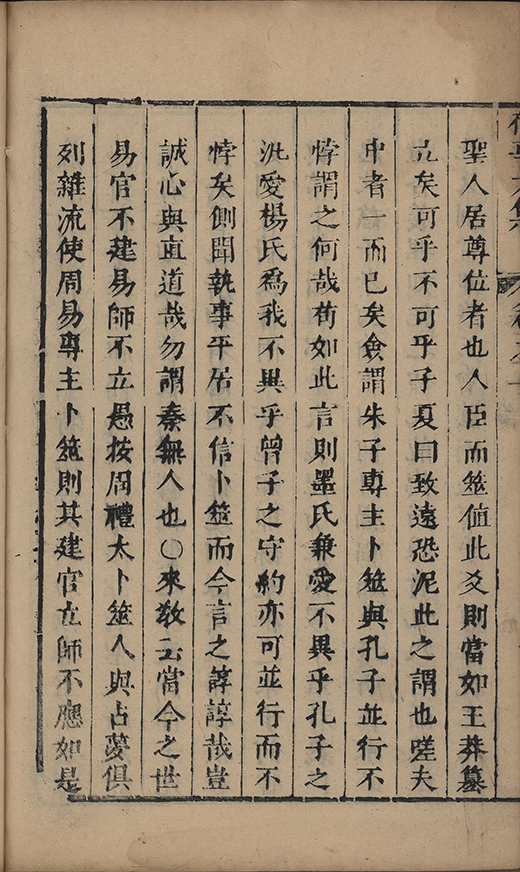 聖人居尊位者也人臣而筮值此爻則當如王莽篡
立矣可乎不可乎子夏曰致遠恐泥此之謂也嗟夫
中者一而已矣僉謂朱子專主卜筮與孔子並行不
悖謂之何哉苟如此言則墨氏兼愛不異乎孔子之
汎愛楊氏爲我不異乎曾子之守約亦可並行而不
悖矣側聞執事平居不信卜筮而今言之諄諄哉豈
誠心與直道哉勿謂秦無人也○來敎云當今之世
易官不建易師不立愚按周禮太卜筮人與占夢俱
列雜流使周易專主卜筮則其建官立師不應如是